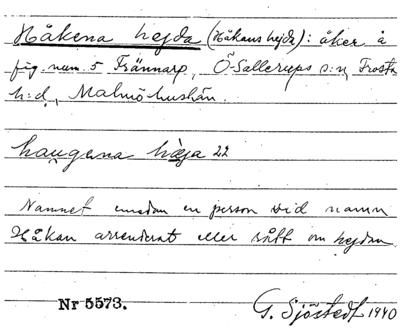 Håkena hejda (Håkans hejda): åker å
fig. num. 5 Frännarp, Ö-Sallerups s:n, Frosta
h:d, Malmöhuslän.
haugena hæja 22
Namnet emedan en person vid namn
Håkan arrenderat eller rått om hejdan
Nr 5573.
G. Sjöstedt 1940